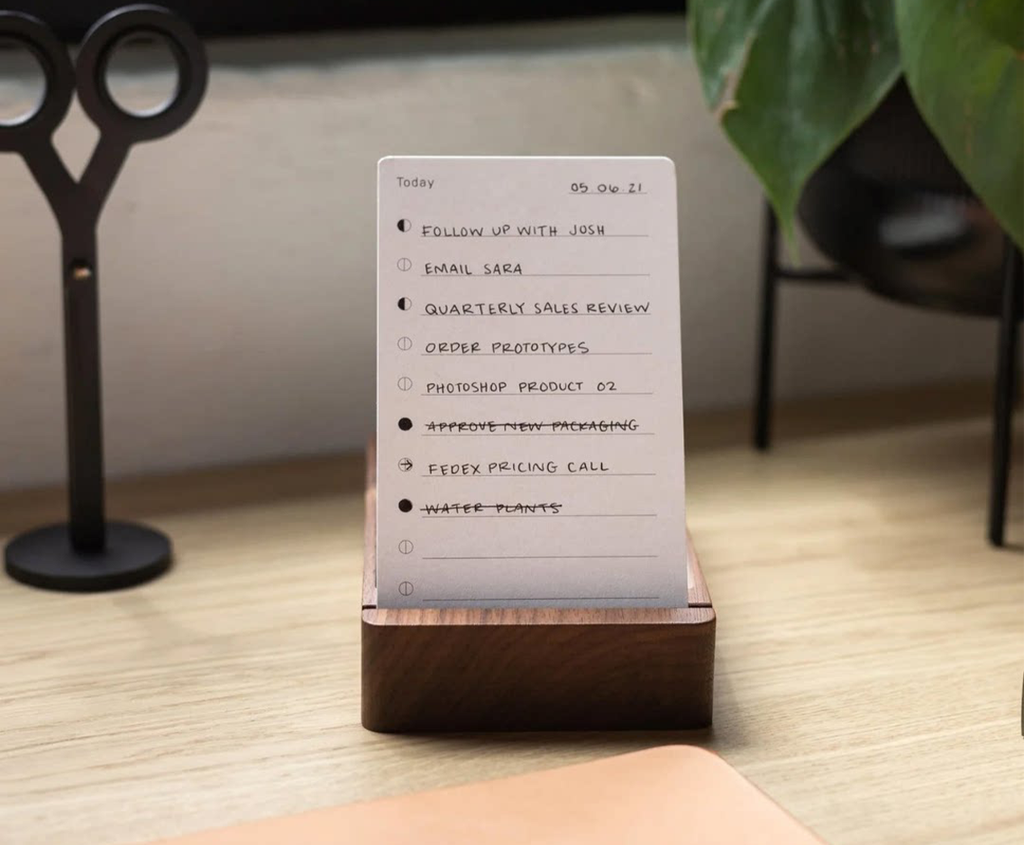 Today
05 06 21
FOLLOW UP WITH JOSH
EMAIL SARA
QUARTERLY SALES REVIEW
ORDER PROTOTYPES
PHOTOSHOP PRODUCT 02
APPROVE NEW PACKAGING
FEDEX PRICING CALL
WATER PLANTS